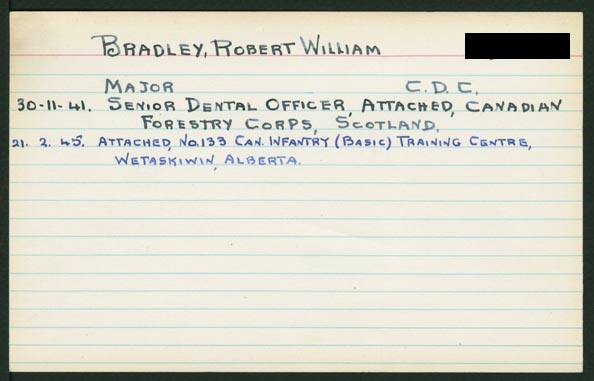 BRADLEY, ROBERT WILLIAM
MAJOR C.D.C.
30-11-41. SENIOR DENTAL OFFICER, ATTACHED, CANADIAN
FORESTRY CORPS, SCOTLAND.
21. 2. 45. ATTACHED, NO.133 CAN. INFANTRY (BASIC) TRAINING CENTRE,
WETASKIWIN, ALBERTA.